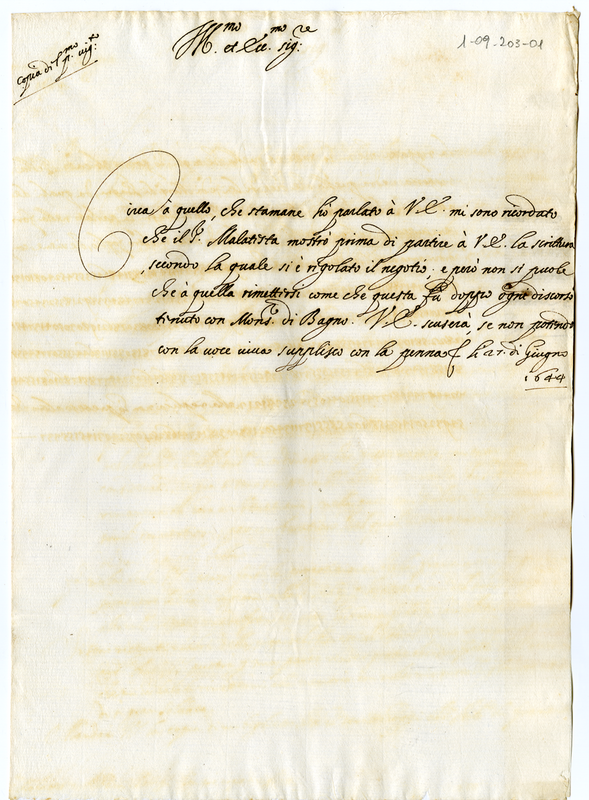 Ill.mo et Ecc.mo sig.re
1-09-203-01
copia di
Circa à quello, che stamane ho parlato à V.E. mi sono ricordato
che il P. Malatista mostrò prima di partire à V.E. la scrittura
secondo la quale si è rigolato il negotio. e però non si puole
che à quella rimettersi come che questa fù doppo ogni discorso
tenuto con Mons.r di Bagno. V.E. scuserà, se non potendo
con la voce viva supplisco con la penna li 27. di Giugno
1644